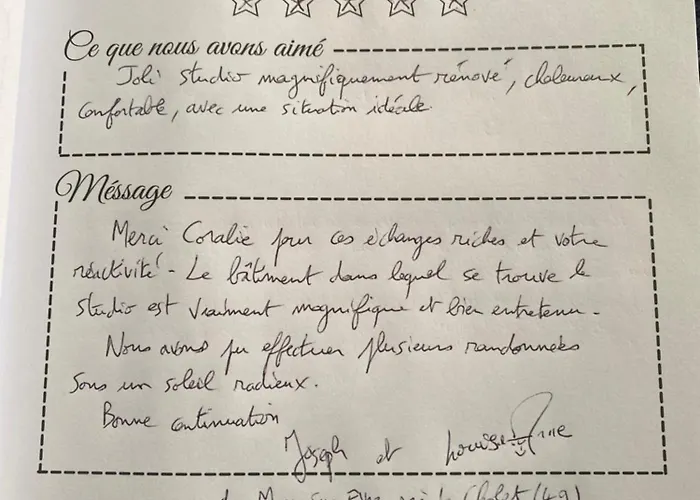 Ce que nous avons aimé
Joli studio magnifiquement rénové, chaleureux,
confortable, avec une situation idéale.
Méssage
Merci Coralie pour ces échanges riches et votre
réactivité - Le bâtiment dans lequel se trouve le
studio est vraiment magnifique et bien entretenu -
Nous avons pu effectuer plusieurs randonnées
sous un soleil radieux.
Bonne continuation
Joseph et Louise-Anne
Cholet (49)